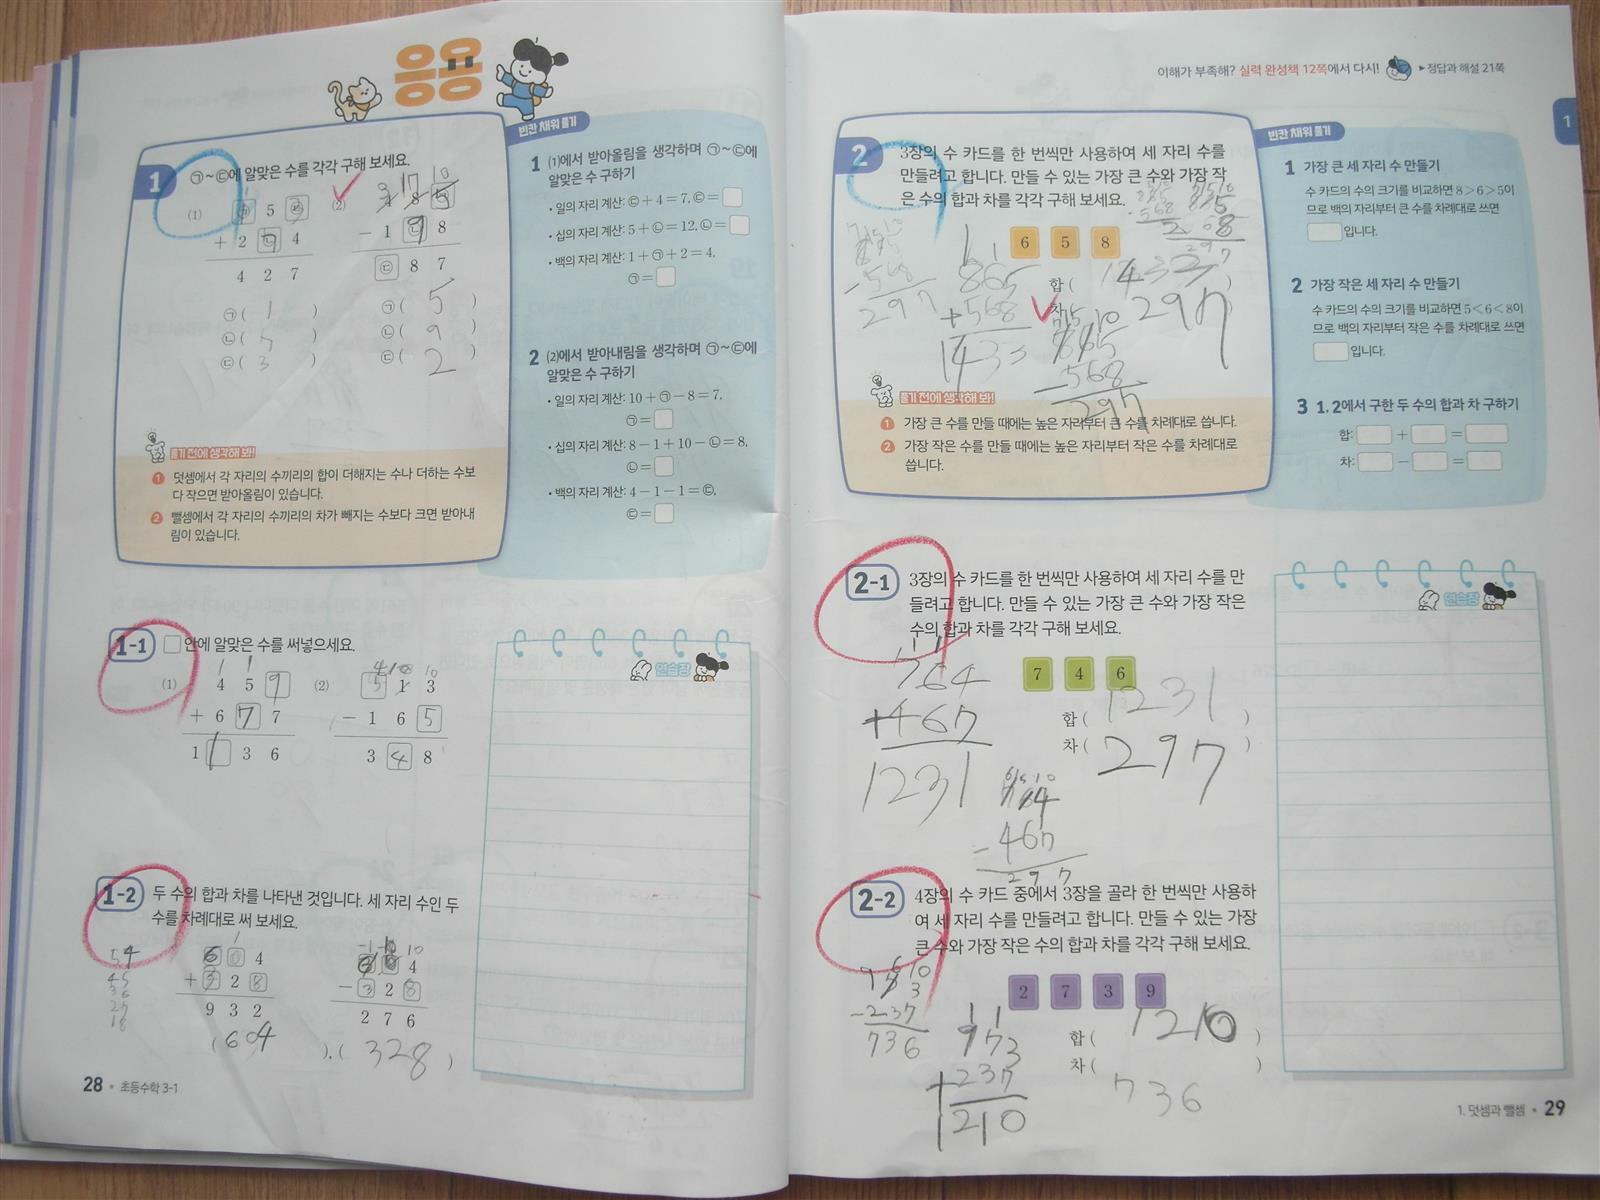 응용
1
㉠~㉢에 알맞은 수를 각각 구해 보세요.
(1)
㉠ 5 ㉢
+ 2 ㉡ 4
4 2 7
㉠( 1 )
㉡( 5 )
㉢( 3 )
(2)
3 17 10
4 8 ㉠
- 1 ㉡ 8
㉢ 8 7
㉠( 5 )
㉡( 9 )
㉢( 2 )
풀기 전에 생각해 봐!
1 덧셈에서 각 자리의 수끼리의 합이 더해지는 수나 더하는 수보
다 작으면 받아올림이 있습니다.
2 뺄셈에서 각 자리의 수끼리의 차가 빼지는 수보다 크면 받아내
림이 있습니다.
빈칸 채워 풀기
1 (1)에서 받아올림을 생각하며 ㉠~㉢에
알맞은 수 구하기
• 일의 자리 계산: ㉢+4=7, ㉢=
• 십의 자리 계산: 5+㉡=12, ㉡=
• 백의 자리 계산: 1+㉠+2=4,
㉠=
2 (2)에서 받아내림을 생각하며 ㉠~㉢에
알맞은 수 구하기
• 일의 자리 계산: 10+㉠-8=7,
㉠=
• 십의 자리 계산: 8-1+10-㉡=8,
㉡=
• 백의 자리 계산: 4-1-1=㉢,
㉢=
1-1 □ 안에 알맞은 수를 써넣으세요.
(1)
1 1
4 5 9
+ 6 7 7
1 1 3 6
(2)
4 10 10
5 1 3
- 1 6 5
3 4 8
연습장
1-2 두 수의 합과 차를 나타낸 것입니다. 세 자리 수인 두
수를 차례대로 써 보세요.
54
45
36
27
18
1
6 0 4
+ 3 2 8
9 3 2
10
6 0 4
- 3 2 8
2 7 6
( 604 ), ( 328 )
28 • 초등수학 3-1
이해가 부족해? 실력 완성책 12쪽에서 다시! ▶정답과 해설 21쪽
1
2
3장의 수 카드를 한 번씩만 사용하여 세 자리 수를
만들려고 합니다. 만들 수 있는 가장 큰 수와 가장 작
은 수의 합과 차를 각각 구해 보세요.
6 5 8
합( 1433
차 297 )
-568
297
1 1
865
+568
1433
7 15 10
865
-568
297
풀기 전에 생각해 봐!
1 가장 큰 수를 만들 때에는 높은 자리부터 큰 수를 차례대로 씁니다.
2 가장 작은 수를 만들 때에는 높은 자리부터 작은 수를 차례대로
씁니다.
빈칸 채워 풀기
1 가장 큰 세 자리 수 만들기
수 카드의 수의 크기를 비교하면 8>6>5이
므로 백의 자리부터 큰 수를 차례대로 쓰면
입니다.
2 가장 작은 세 자리 수 만들기
수 카드의 수의 크기를 비교하면 5<6<8이
므로 백의 자리부터 작은 수를 차례대로 쓰면
입니다.
3 1, 2에서 구한 두 수의 합과 차 구하기
합: + =
차: - =
2-1 3장의 수 카드를 한 번씩만 사용하여 세 자리 수를 만
들려고 합니다. 만들 수 있는 가장 큰 수와 가장 작은
수의 합과 차를 각각 구해 보세요.
7 4 6
합( 1231 )
차( 297 )
1 1
764
+467
1231
6 15 10
764
-467
297
연습장
2-2 4장의 수 카드 중에서 3장을 골라 한 번씩만 사용하
여 세 자리 수를 만들려고 합니다. 만들 수 있는 가장
큰 수와 가장 작은 수의 합과 차를 각각 구해 보세요.
2 7 3 9
합( 1210 )
차( 736 )
6 10
973
-237
736
1 1
973
+237
1210
1. 덧셈과 뺄셈 • 29